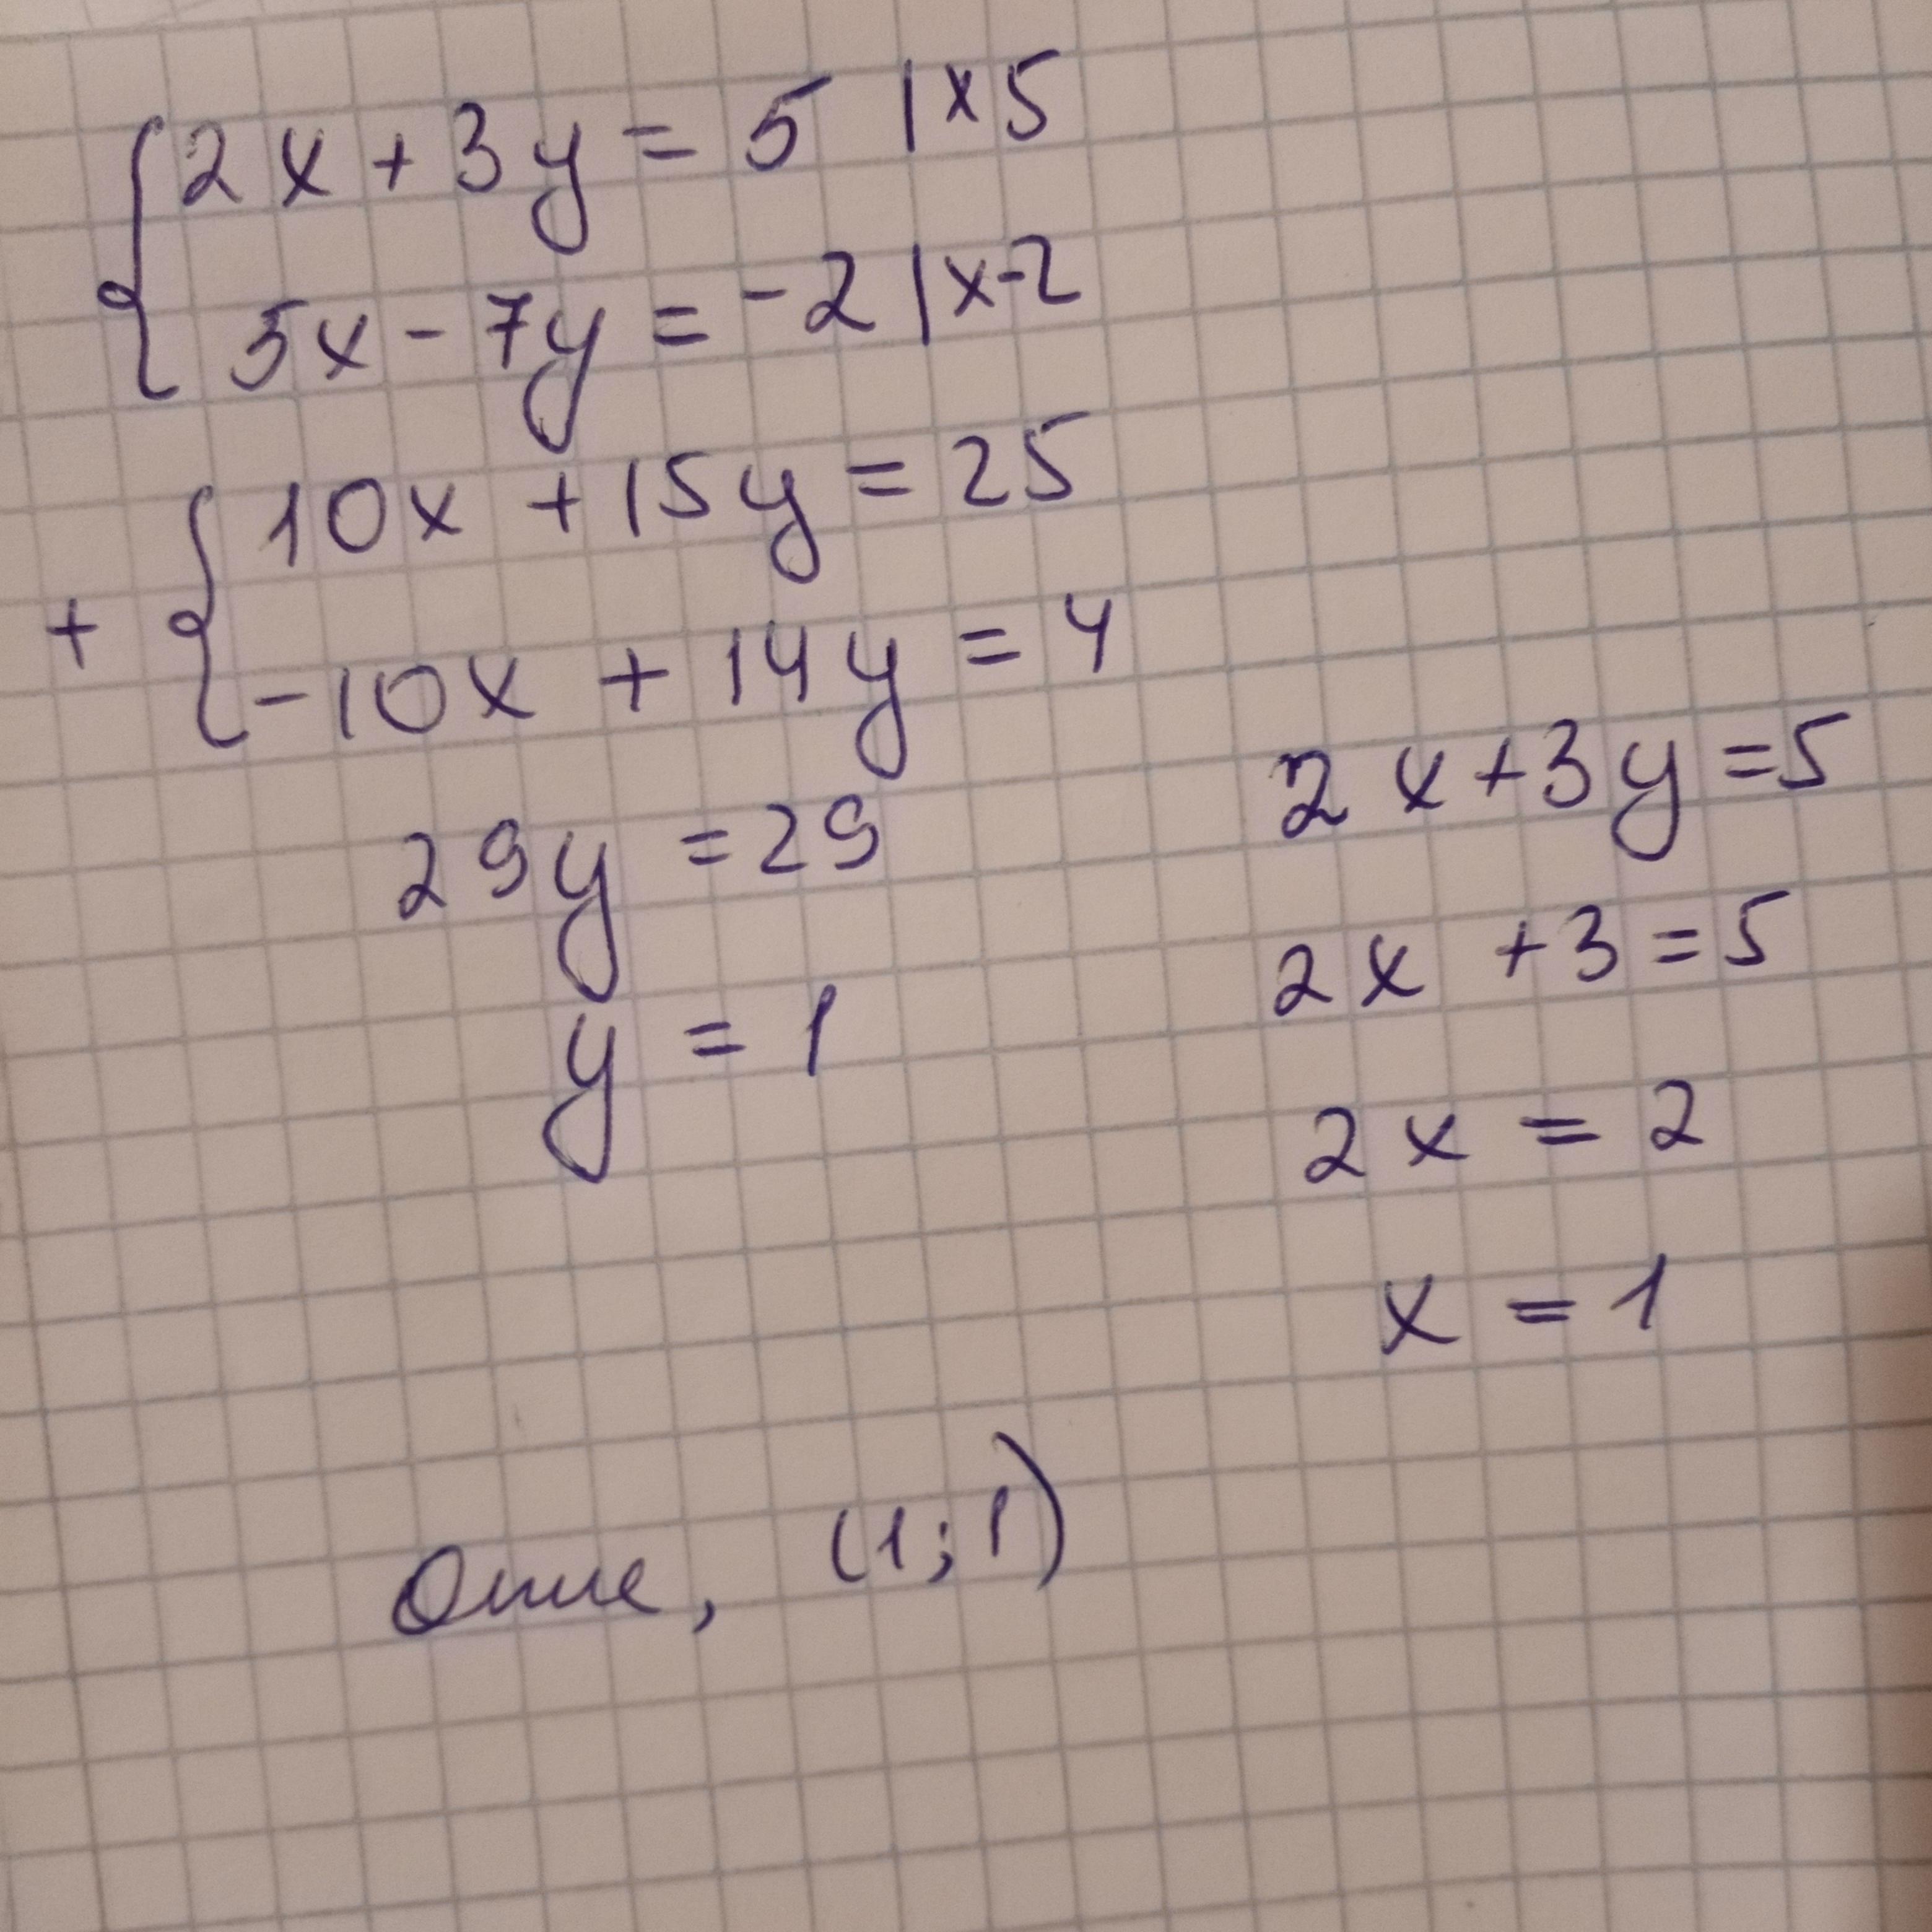 2x + 3y = 5 | x 5
5x - 7y = -2 | x -2
10x + 15y = 25
+
-10x + 14y = 4
29y = 29
y = 1
2x + 3y = 5
2x + 3 = 5
2x = 2
x = 1
(1; 1)